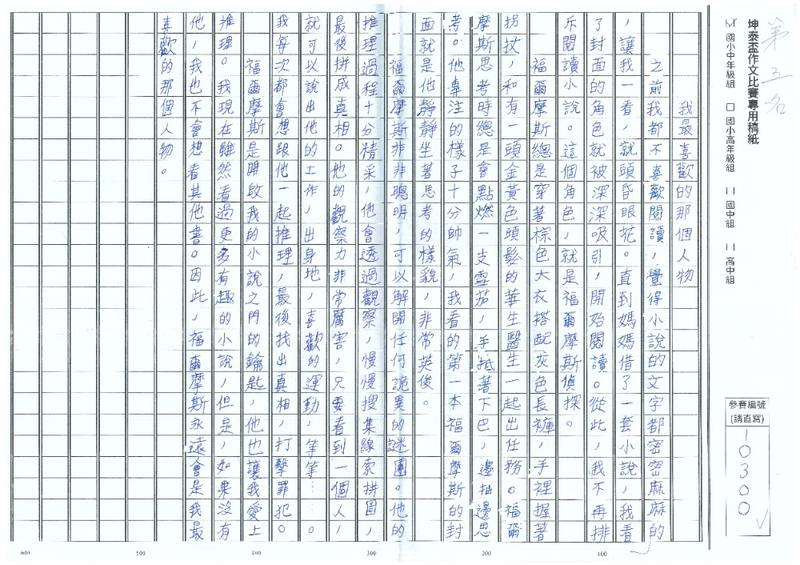 第五名
坤泰盃作文比賽專用稿紙
☑ 國小中年級組 □ 國小高年級組 □ 國中組 □ 高中組
參賽編號
(請直寫)
10300
我最喜歡的那個人物
之前我都不喜歡閱讀,覺得小說的文字都密密麻麻的
,讓我一看,就頭昏眼花。直到媽媽借了一套小說,我看
了封面的角色就被深深吸引,開始閱讀。從此,我不再排
斥閱讀小說。這個角色,就是福爾摩斯偵探。
福爾摩斯總是穿著棕色大衣搭配灰色長褲,手裡握著
拐杖,和有一頭金黃色頭髮的華生醫生一起出任務。福爾
摩斯思考時總是會點燃一支雪茄,手抵著下巴,邊抽邊思
考。他專注的樣子十分帥氣,我看的第一本福爾摩斯的封
面就是他靜靜坐著思考的樣貌,非常英俊。
福爾摩斯非非聰明,可以解開任何詭異的謎團。他的
推理過程十分精采,他會透過觀察,慢慢搜集線索拼圖,
最後拼成真相。他的觀察力非常厲害,只要看到一個人,
就可以說出他的工作,出身地,喜歡的運動,等等……。
我每次都會想跟他一起推理,最後找出真相,打擊罪犯。
福爾摩斯是開啟我的小說之門的鑰匙,他也讓我愛上
推理。我現在雖然看過更多有趣的小說,但是,如果沒有
他,我也不會想看其他書。因此,福爾摩斯永遠會是我最
喜歡的那個人物。
100
200
300
400
500
600